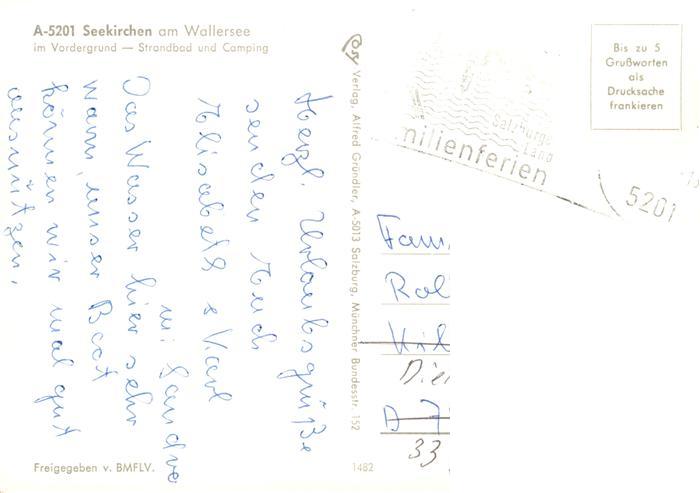 A-5201 Seekirchen am Wallersee
im Vordergrund — Strandbad und Camping
Herzl. Urlaubsgrüße
senden Euch
Elisabeth & Karl
m. Sandra
Das Wasser hier sehr
warm, unser Boot
können wir mal gut
ausnützen.
Freigegeben v. BMFLV.
Verlag, Alfred Gründler, A-5013 Salzburg, Münchner Bundesstr. 152
1482
Salzburger
Land
milienferien
5201
Bis zu 5
Grußworten
als
Drucksache
frankieren
Fam.
Rol
Hil
Die
D 7
33